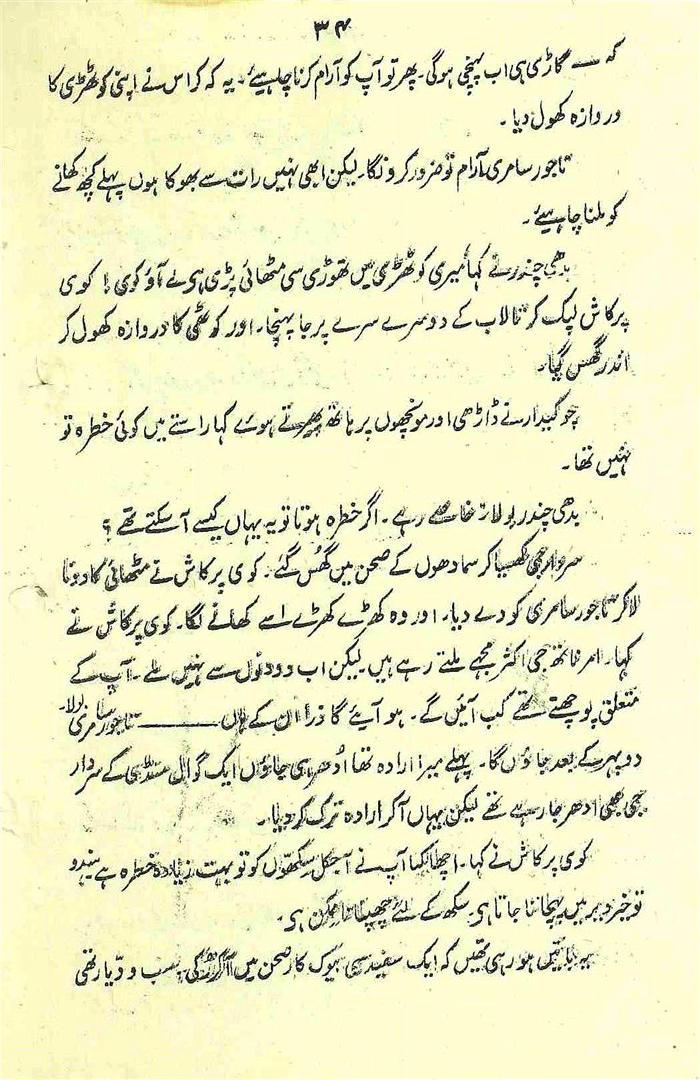 ۳۴
کہ — گاڑی ہی اب پہنچی ہوگی۔ پھر تو آپ کو آرام کرنا چاہیئے۔ یہ کہ کر اس نے اپنی کوٹھڑی کا
دروازہ کھول دیا۔
تاجور سامری۔ آرام تو ضرور کرونگا۔ لیکن ابھی نہیں رات سے بھوکا ہوں پہلے کچھ کھانے
کو ملنا چاہیئے۔
بدھی چندر نے کہا میری کوٹھڑی میں تھوڑی سی مٹھائی پڑی ہی لے آؤ کوی! کوی
پرکاش لپک کر تالاب کے دوسرے سرے پر جا پہنچا۔ اور کوٹھی کا دروازہ کھول کر
اندر گھس گیا۔
چوکیدار نے ڈاڑھی اور مونچھوں پر ہاتھ پھیرتے ہوئے کہا راستے میں کوئی خطرہ تو
نہیں تھا۔
بدھی چندر بولا۔ خاصے رہے۔ اگر خطرہ ہوتا تو یہ یہاں کیسے آ سکتے تھے؟
سردار جی کھسیا کر سمادھوں کے صحن میں گھُس گئے۔ کوی پرکاش نے مٹھائی کا دونا
لا کر تاجور سامری کو دے دیا۔ اور وہ کھڑے کھڑے اسے کھانے لگا۔ کوی پرکاش نے
کہا۔ امر ناتھ جی اکثر مجھے ملتے رہے ہیں۔ لیکن اب دو دنوں سے نہیں ملے۔ آپ کے
متعلق پوچھتے تھے کب آئیں گے۔ ہو آیئے گا ذرا ان کے ہاں —— تاجور سامری بولا۔
دوپہر کے بعد جاؤں گا۔ پہلے میرا ارادہ تھا اُدھر ہی جاؤں ایک گوال منڈی کے سردار
جی بھی ادھر جا رہے تھے لیکن یہاں آ کر ارادہ ترک کر دیا۔
کوی پرکاش نے کہا۔ اچھا کیا آپ نے آجکل سکھوں کو تو بہت زیادہ خطرہ ہے ہندو
تو خیر دیر میں پہچانا جاتا ہی۔ سکھ کے لئے چھپنا ناممکن ہی۔
یہ باتیں ہو رہی تھیں کہ ایک سفید سی بیوک کار صحن میں آ کر رکی۔ سب ودیارتھی